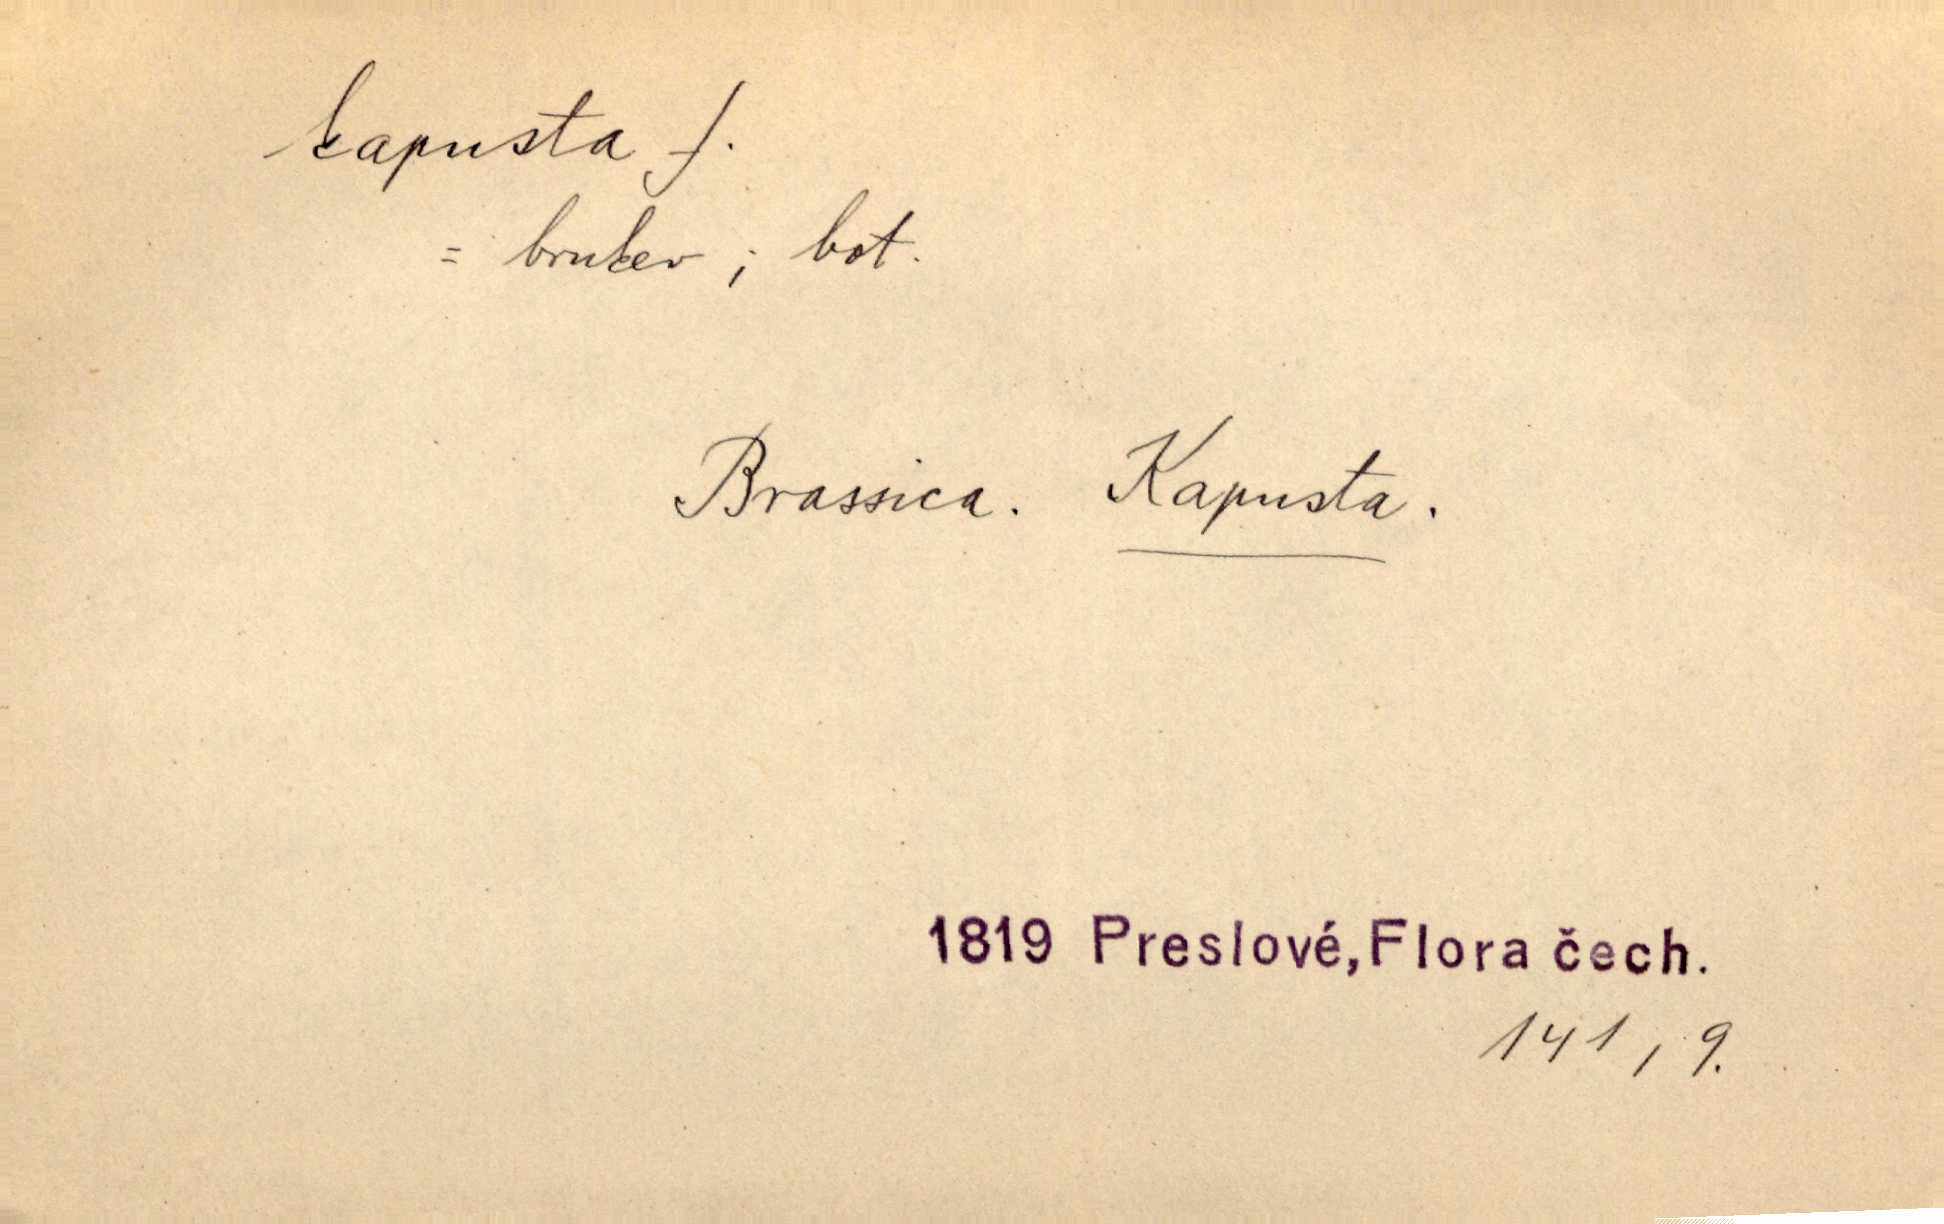 kapusta f.
= brukev ; bot.
Brassica. Kapusta.
1819 Preslové, Flora čech.
141, 9.